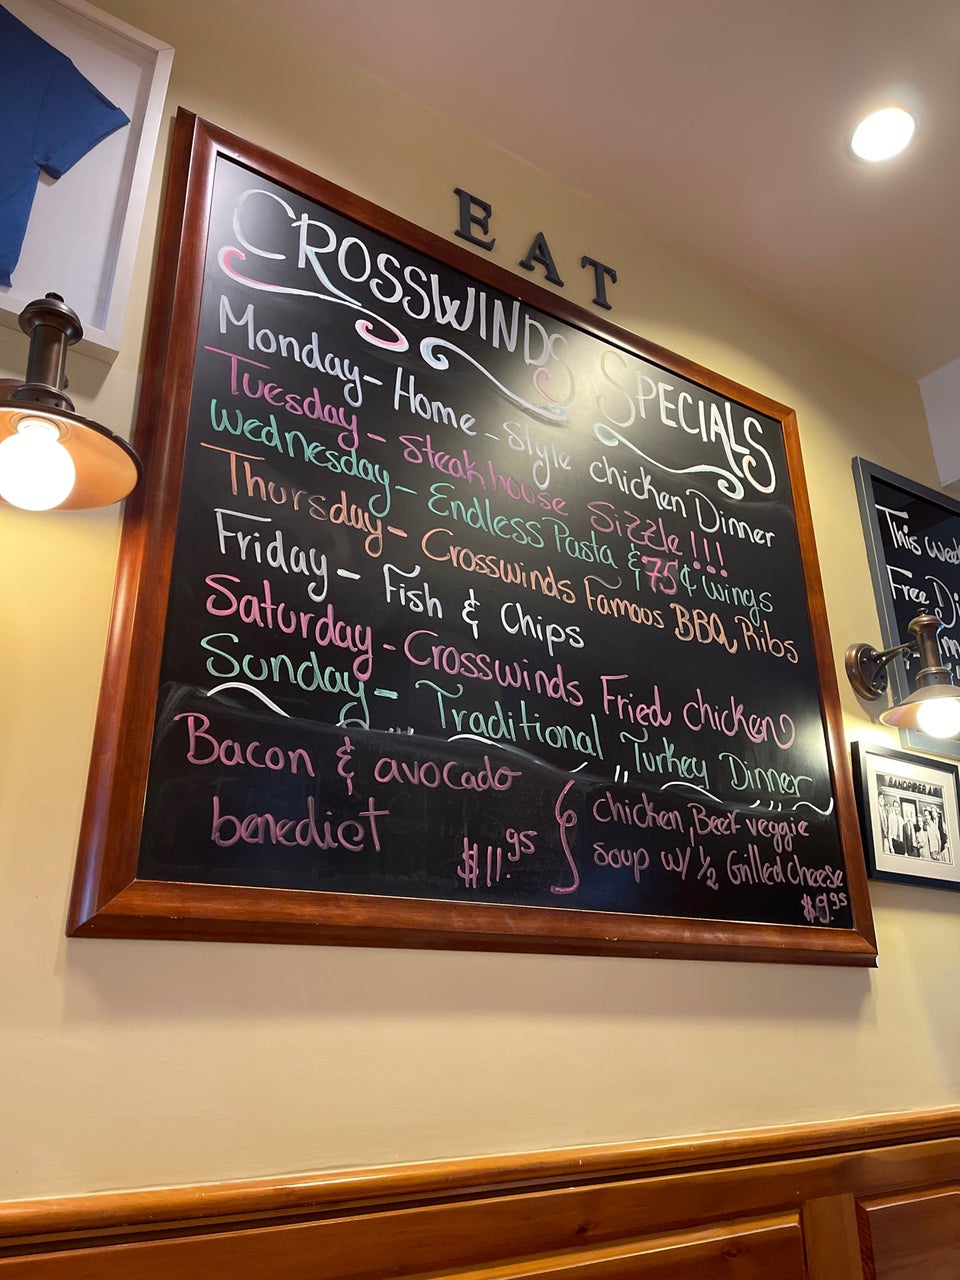 EAT
CROSSWINDS SPECIALS
Monday - Home-Style chicken Dinner
Tuesday - Steakhouse Sizzle!!!
Wednesday - Endless Pasta & 75¢ wings
Thursday - Crosswinds Famous BBQ Ribs
Friday - Fish & Chips
Saturday - Crosswinds Fried chicken
Sunday - Traditional Turkey Dinner
Bacon & avocado
benedict $11.95
chicken, Beef veggie
soup w/ 1/2 Grilled cheese
$9.95
This
Free
SANDPIPER AIR